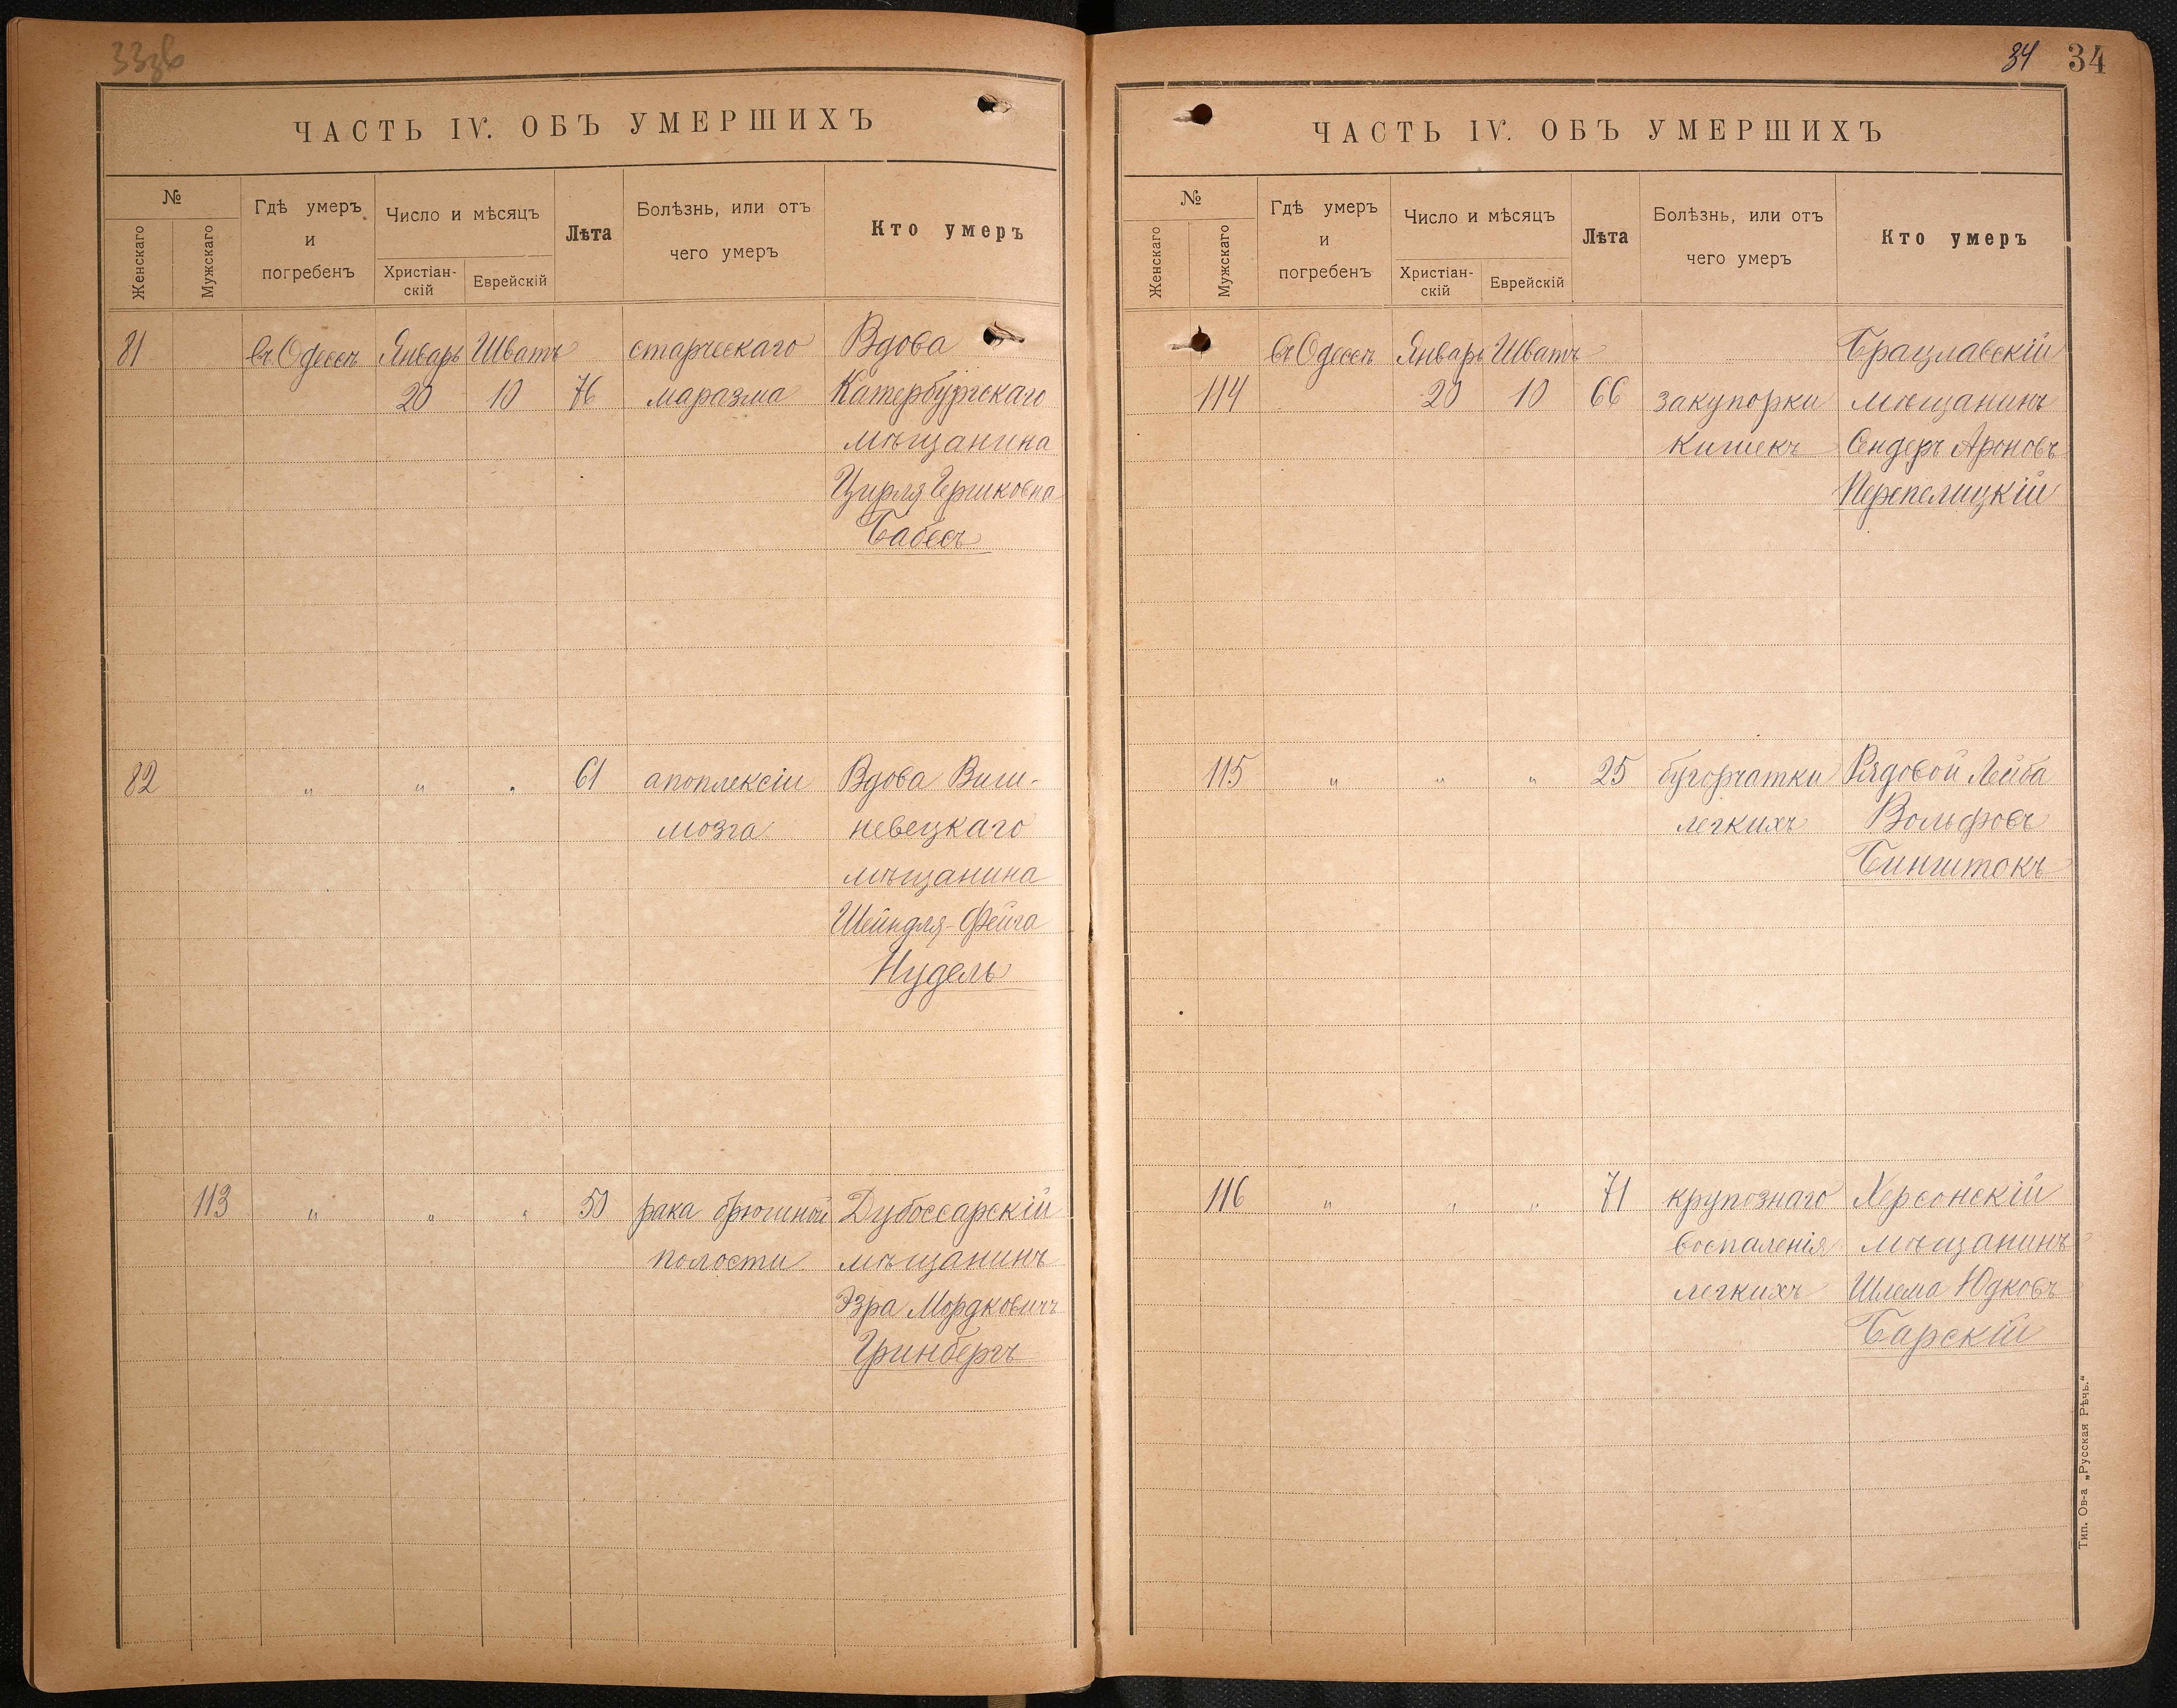 33зв
ЧАСТЬ IV. ОБЪ УМЕРШИХЪ
№
Женскаго
Мужскаго
Гдѣ умеръ
и
погребенъ
Число и мѣсяцъ
Христіан-
скій
Еврейскій
Лѣта
Болѣзнь, или отъ
чего умеръ
Кто умеръ
81 въ Одессѣ Январь Шватъ старческаго Вдова
20 10 76 маразма Катербургскаго
мѣщанина
Цирля Гершковна
Бабесъ
82 " " " 61 апоплексіи Вдова Виш-
мозга невецкаго
мѣщанина
Шейндля-Фейга
Нудель
113 " " " 50 рака брюшной Дубоссарскій
полости мѣщанинъ
Эзра Мордковичъ
Гринбергъ
34 34
ЧАСТЬ IV. ОБЪ УМЕРШИХЪ
№
Женскаго
Мужскаго
Гдѣ умеръ
и
погребенъ
Число и мѣсяцъ
Христіан-
скій
Еврейскій
Лѣта
Болѣзнь, или отъ
чего умеръ
Кто умеръ
въ Одессѣ Январь Шватъ Брацлавскій
114 20 10 66 закупорки мѣщанинъ
кишекъ Сендеръ Ароновъ
Перепелицкій
115 " " " 25 бугорчатки Рядовой Лейба
легкихъ Вольфовъ
Бинштокъ
116 " " " 71 крупознаго Херсонскій
воспаленія мѣщанинъ
легкихъ Шлема Юдковъ
Барскій
Тип. Ов-а „Русская Рѣчь.“